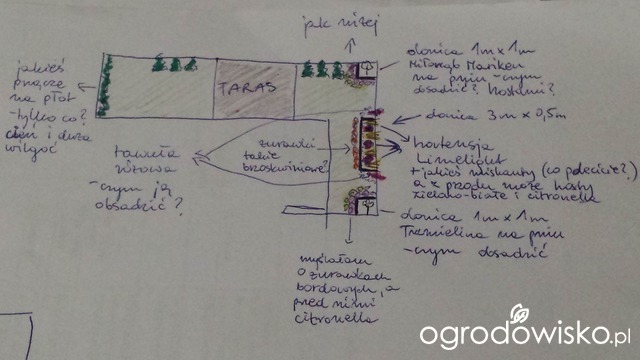 jak niżej
jakieś
pnącze
na płot
-tylko co?
cień i duża
wilgoć
TARAS
donica 1m x 1m
Miłorząb Mariken
na pniu - czym
obsadzić? Hostami?
donica 3m x 0,5m
tawuła
-czym ją
obsadzić?
żurawki
takie
brzoskwiniowe?
hortensja
Limelight
+ jakieś miskanty (co polecicie?)
a z przodu może hosty
zielono-białe i citronella
donica 1m x 1m
Trzmielina na pniu
-czym obsadzić
myślałam
o żurawkach
bordowych, a
przed nimi
citronella
ogrodowisko.pl